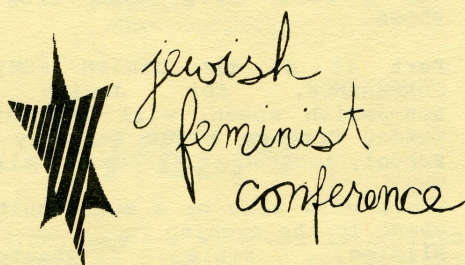 jewish
feminist
conference